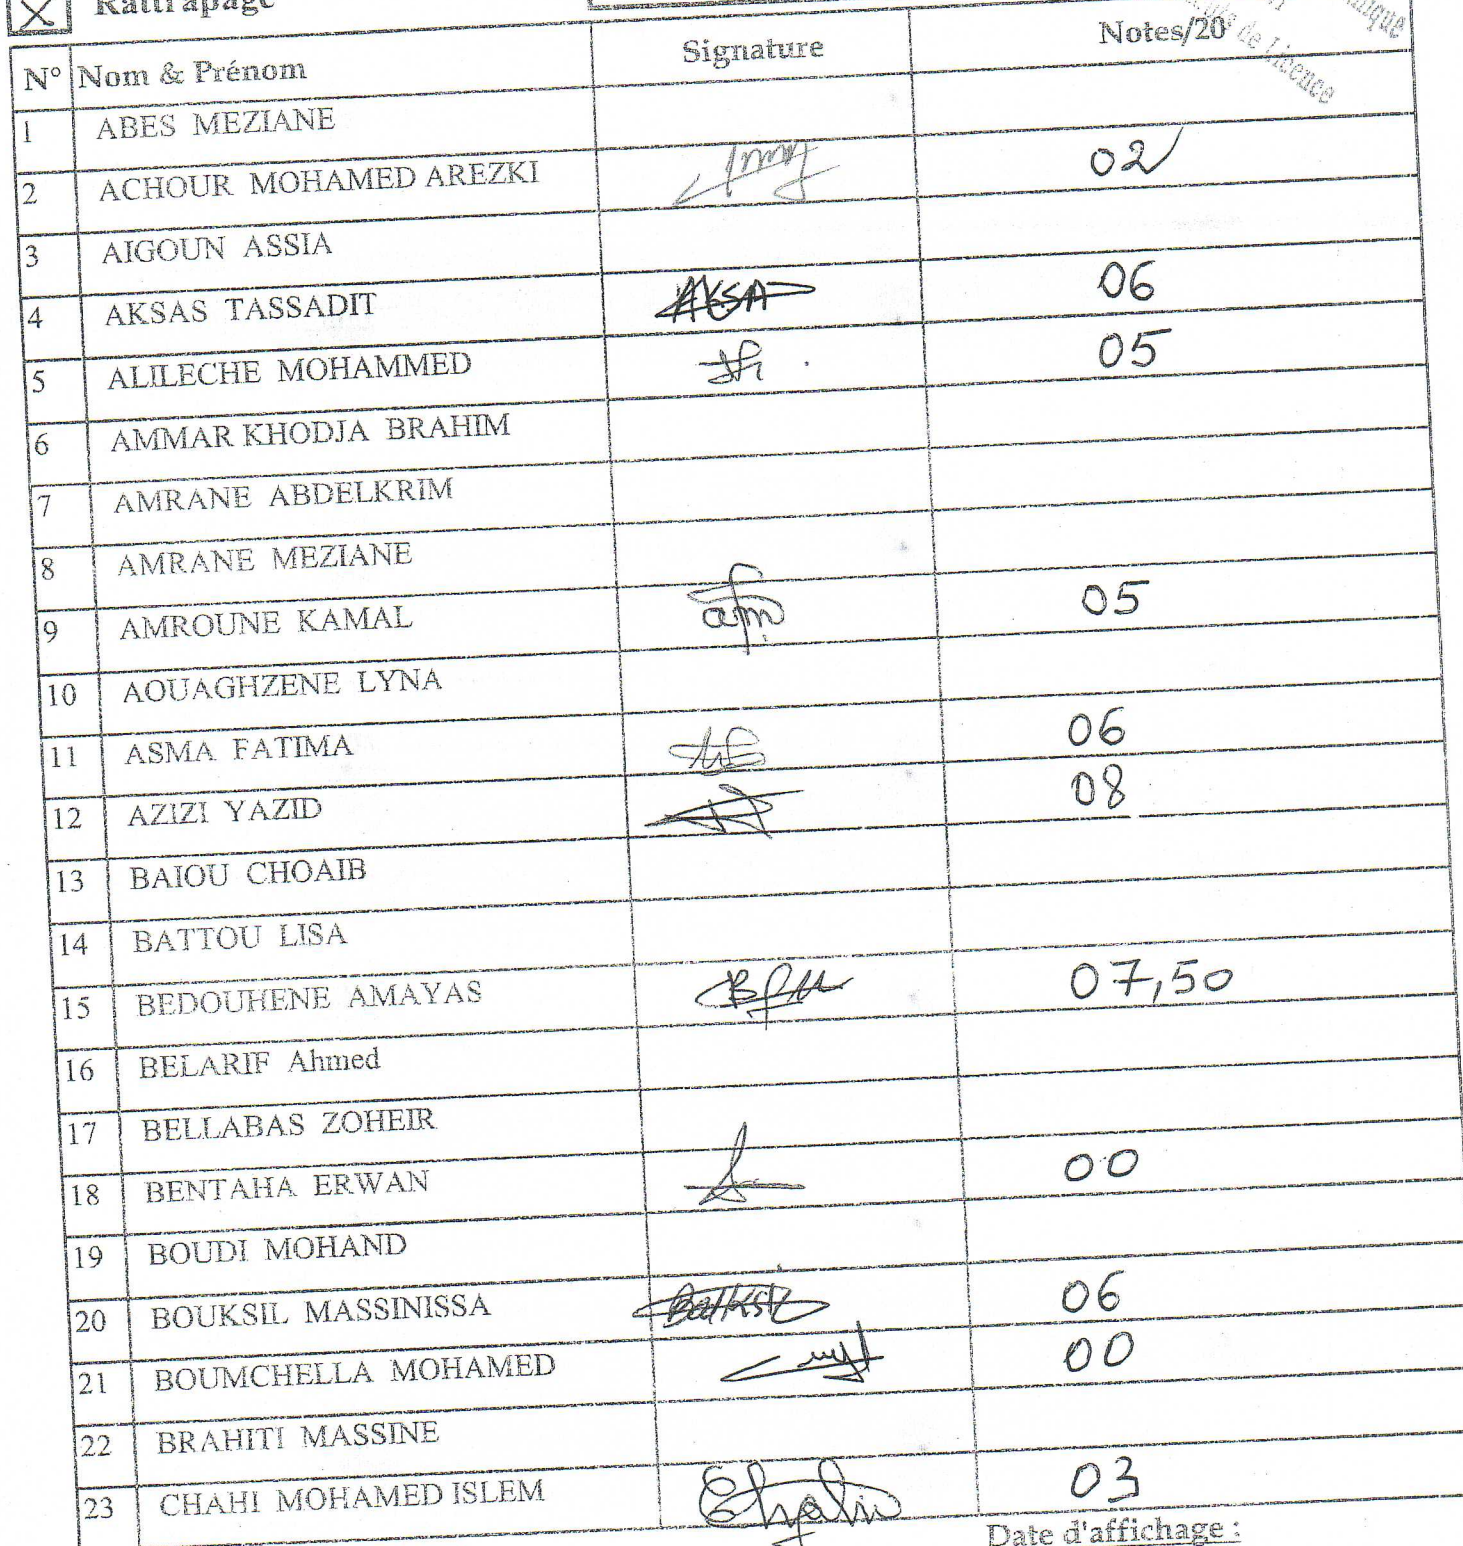 Rattrapage
N° Nom & Prénom Signature Notes/20
de Licence
1 ABES MEZIANE
2 ACHOUR MOHAMED AREZKI 02
3 AIGOUN ASSIA
4 AKSAS TASSADIT AKSA 06
5 ALILECHE MOHAMMED 05
6 AMMAR KHODJA BRAHIM
7 AMRANE ABDELKRIM
8 AMRANE MEZIANE
9 AMROUNE KAMAL 05
10 AOUAGHZENE LYNA
11 ASMA FATIMA 06
12 AZIZI YAZID 08
13 BAIOU CHOAIB
14 BATTOU LISA
15 BEDOUHENE AMAYAS 07,50
16 BELARIF Ahmed
17 BELLABAS ZOHEIR
18 BENTAHA ERWAN 00
19 BOUDI MOHAND
20 BOUKSIL MASSINISSA 06
21 BOUMCHELLA MOHAMED 00
22 BRAHITI MASSINE
23 CHAHI MOHAMED ISLEM 03
Date d'affichage :